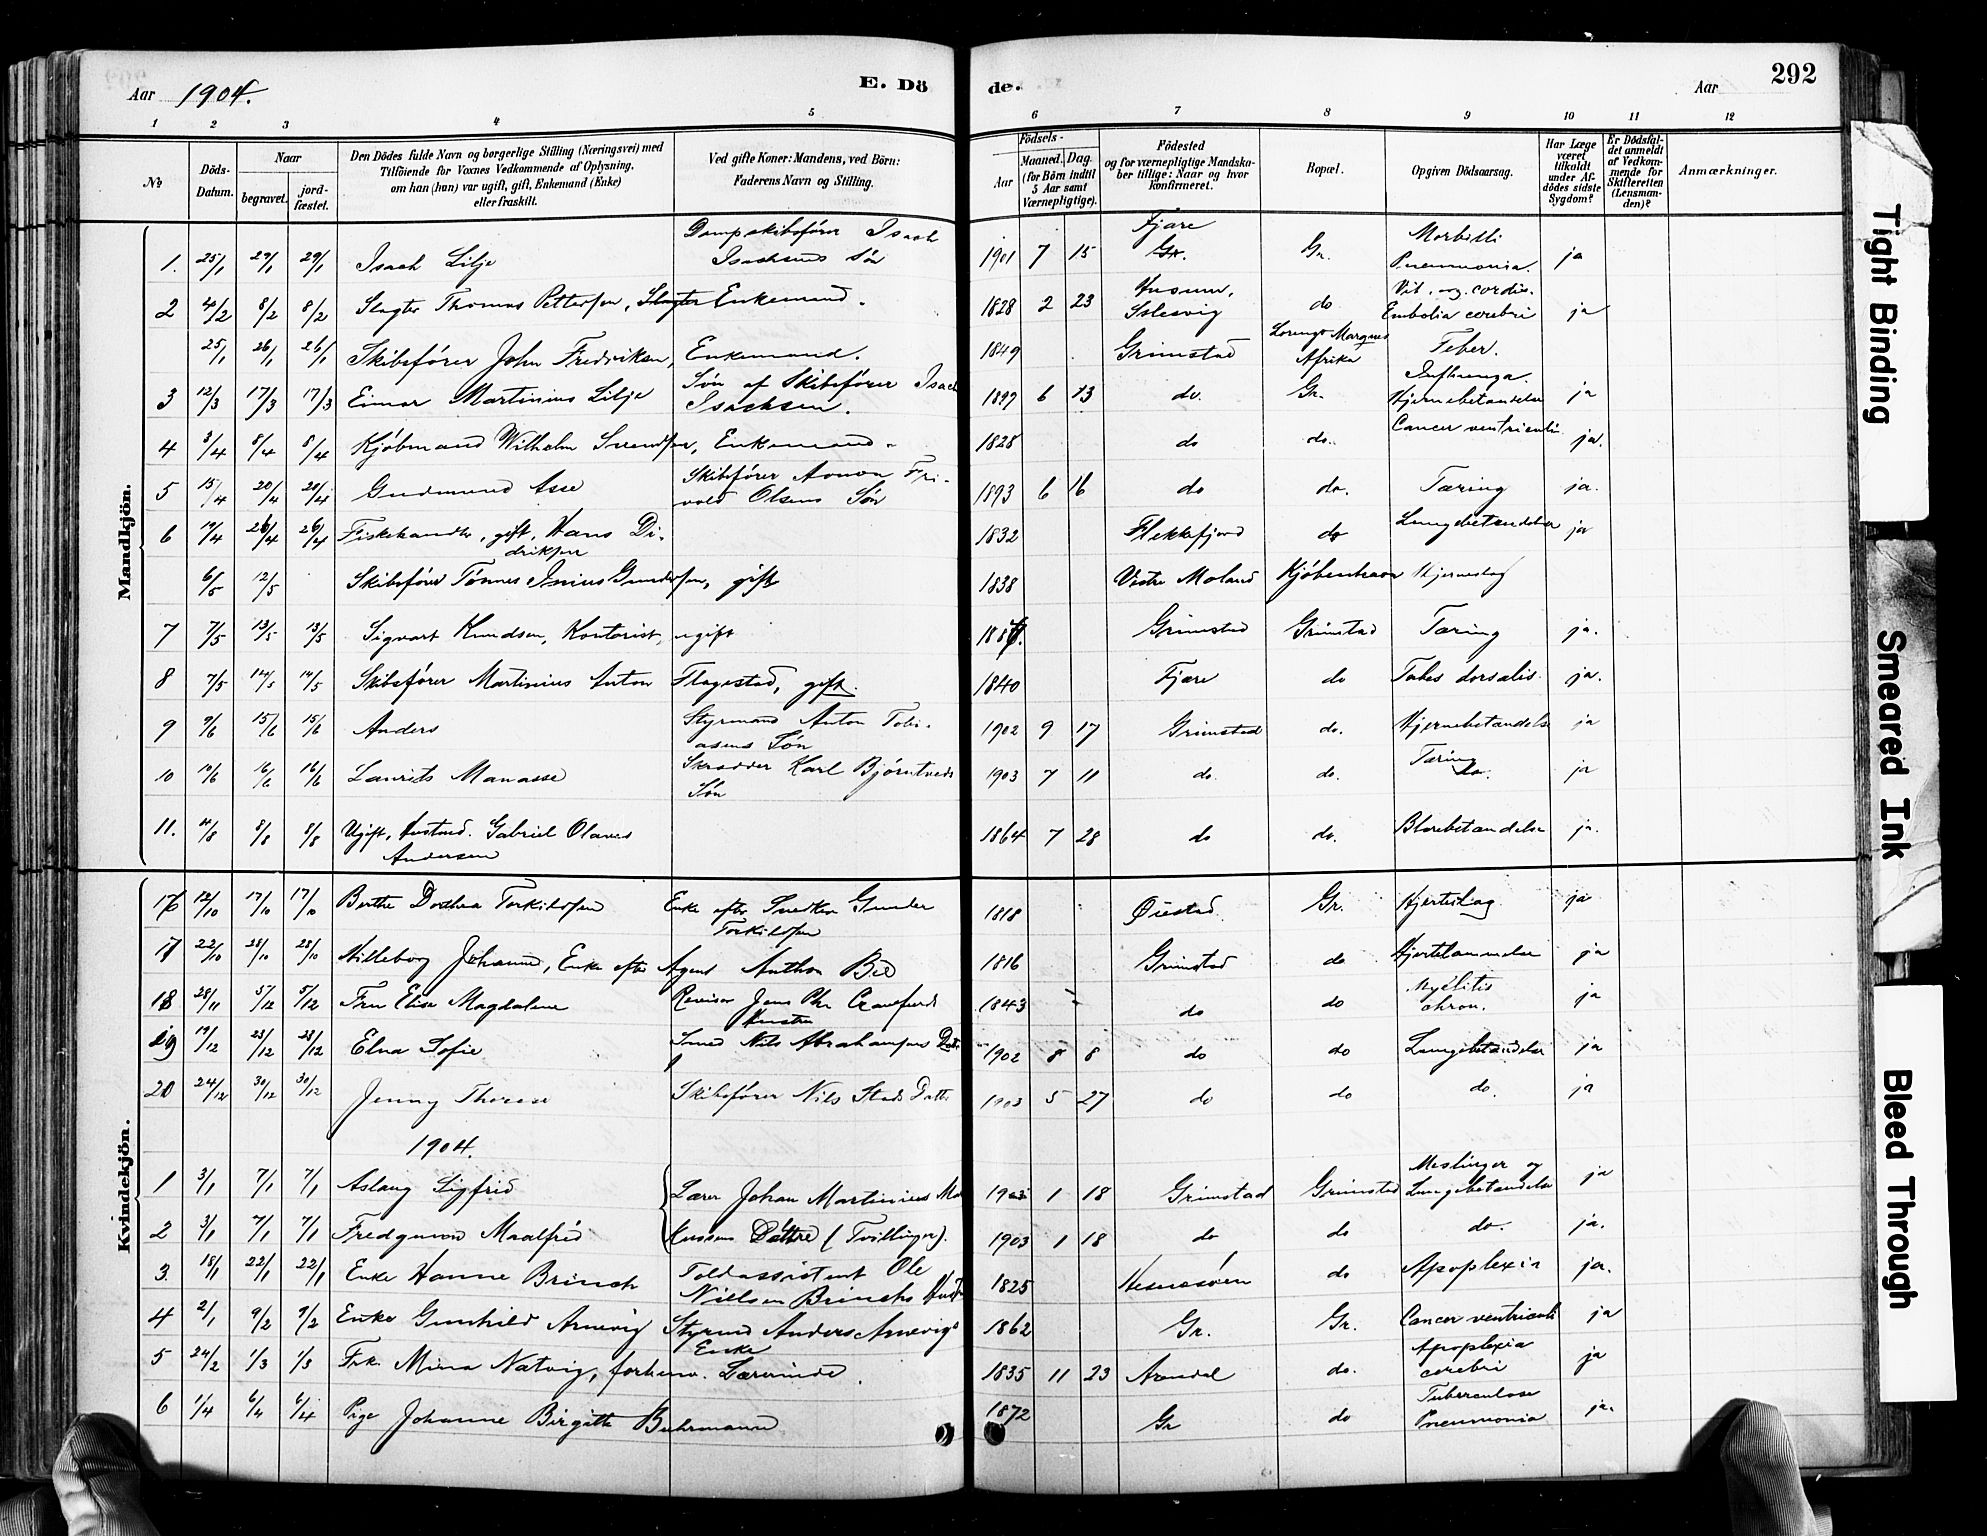 Aar 1904.
E. Dö
de.
Aar
292
1 2 3 4 5 6 7 8 9 10 11 12
No
Döds-Datum.
Naar
begravet.
jord-fæstet.
Den Dödes fulde Navn og borgerlige Stilling (Næringsvei) med
Tilföiende for Voxnes Vedkommende af Oplysning,
om han (hun) var ugift, gift, Enkemand (Enke)
eller fraskilt.
Ved gifte Koner: Mandens, ved Börn:
Faderens Navn og Stilling.
Födsels-
Aar
Maaned. Dag.
(for Börn indtil
5 Aar samt
Værnepligtige).
Födested
og for værnepligtige Mandska-
ber tillige: Naar og hvor
konfirmeret.
Bopæl.
Opgiven Dödsaarsag.
Har Læge
været
tilkaldt
under Af-
dödes sidste
Sygdom?
Er Dödsfal-
det anmeldt
af Vedkom-
mende for
Skifteretten
(Lensman-
den)?
Anmærkninger.
Mandkjön.
1. 25/1 29/1 29/1 Isach Lilje Dampskibsfører Isach Isachsens Søn 1901 7 15 Fjære Gr. Gr. Morbilli Pneumonia. ja
2 4/2 8/2 8/2 Slagter Thomas Pettersen, Slagter Enkemand. 1828 2 23 Husum, Slesvig do Vit. org. cordis. Embolia cerebri ja
25/1 26/1 26/1 Skibsfører John Fredriksen, Enkemand. 1849 Grimstad Lorenzo Marques Afrika Feber.
3 12/3 17/3 17/3 Einar Martinius Lilje Søn af Skibsfører Isach Isachsen. 1897 6 13 do. Gr. Influenza. Hjernebetændelse ja
4 3/4 8/4 8/4 Kjøbmand Wilhelm Svendsen, Enkemand. 1828 do do. Cancer ventriculi ja.
5 15/4 20/4 20/4 Gudmund Asse Skibsfører Aanon Fri-vold Olsens Søn 1893 6 16 do do. Tæring ja.
6 19/4 26/4 26/4 Fiskehandler, gift, Hans Di-driksen 1832 Flekkefjord do Lungebetændelse ja
6/5 12/5 Skibsfører Tønnes Inius Gundersen, gift 1838 Vestre Moland Kjøbenhavn Hjerneslag
7 7/5 13/5 13/5 Sigvart Knudsen, Kontorist, ugift Grimstad Grimstad Tæring ja.
8 7/5 14/5 14/5 Skibsfører Martinius Anton Flagestad, gift. 1840 Fjære do Tabes dorsalis. ja.
9 9/6 15/6 15/6 Anders Styrmand Anton Tobi-asens Søn 1902 9 17 Grimstad do. Hjernebetændelse ja
10 10/6 16/6 16/6 Laurits Manasse Skrædder Karl Bjørntveds Søn 1903 7 11 do. do. Tæring do. ja
11. 4/8 8/8 8/8 Ugift, Gabriel Olaves Andersen 1864 7 28 do do. Blærebetændelse ja.
Kvindekjön.
16 12/10 17/10 17/10 Berthe Dorthea Torkildsen Enke efter Snedker Gunder Torkildsen 1818 Øiestad. Gr. Hjerteslag ja
17 22/10 28/10 28/10 Hilleborg Johanne, Enke efter Agent Anthon Bie 1816 Grimstad do Hjertelammelse ja
18 28/11 5/12 5/12 Fru Elise Magdalene Revisor Jens Chr Crawfurds Hustru 1843 do do Myelitis chron. ja
19 19/12 23/12 23/12 Elna Sofie Smed Nils Abrahamsens Datter 1902 8 8 do do Lungebetændelse ja
20 24/12 30/12 30/12 Jenny Therese Skibsfører Nils Stads Datter 1903 5 27 do do do. ja
1904.
1 3/1 7/1 7/1 Aslaug Sigfrid Lærer Johan Martinius Ma- 1903 1 18 Grimstad Grimstad Meslinger og Lungebetændelse ja
2 3/1 7/1 7/1 Fredgunn Maalfrid Døttre (Tvillinger). 1903 1 18 do do do. ja.
3. 18/1 22/1 22/1 Enke Hanne Brinch Toldassistent Ole Nielsen Brinchs 1825 Hesnesøen do Apoplexia ja.
4 2/1 9/2 9/2 Enke Gunhild Arnevig Styrmd Anders Arnevigs Enke 1862 Gr. Gr. Cancer ventriculi ja
5 24/2 1/3 1/3 Frk. Mina Natvig, forhenv. Lærerinde. 1835 11 23 Arendal do. Apoplexia cerebri ja
6 1/4 6/4 6/4 Pige Johanne Birgitte Buhrmann 1872 Gr do Tuberculose Pneumonia ja.
Tight Binding
Smeared Ink
Bleed Through